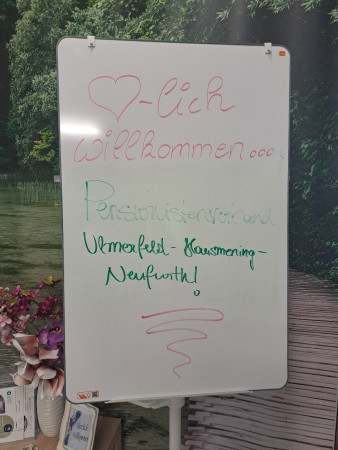 ♡-lich
willkommen...
Pensionistenverband
Ulmerfeld-Hausmening-
Neufurth!